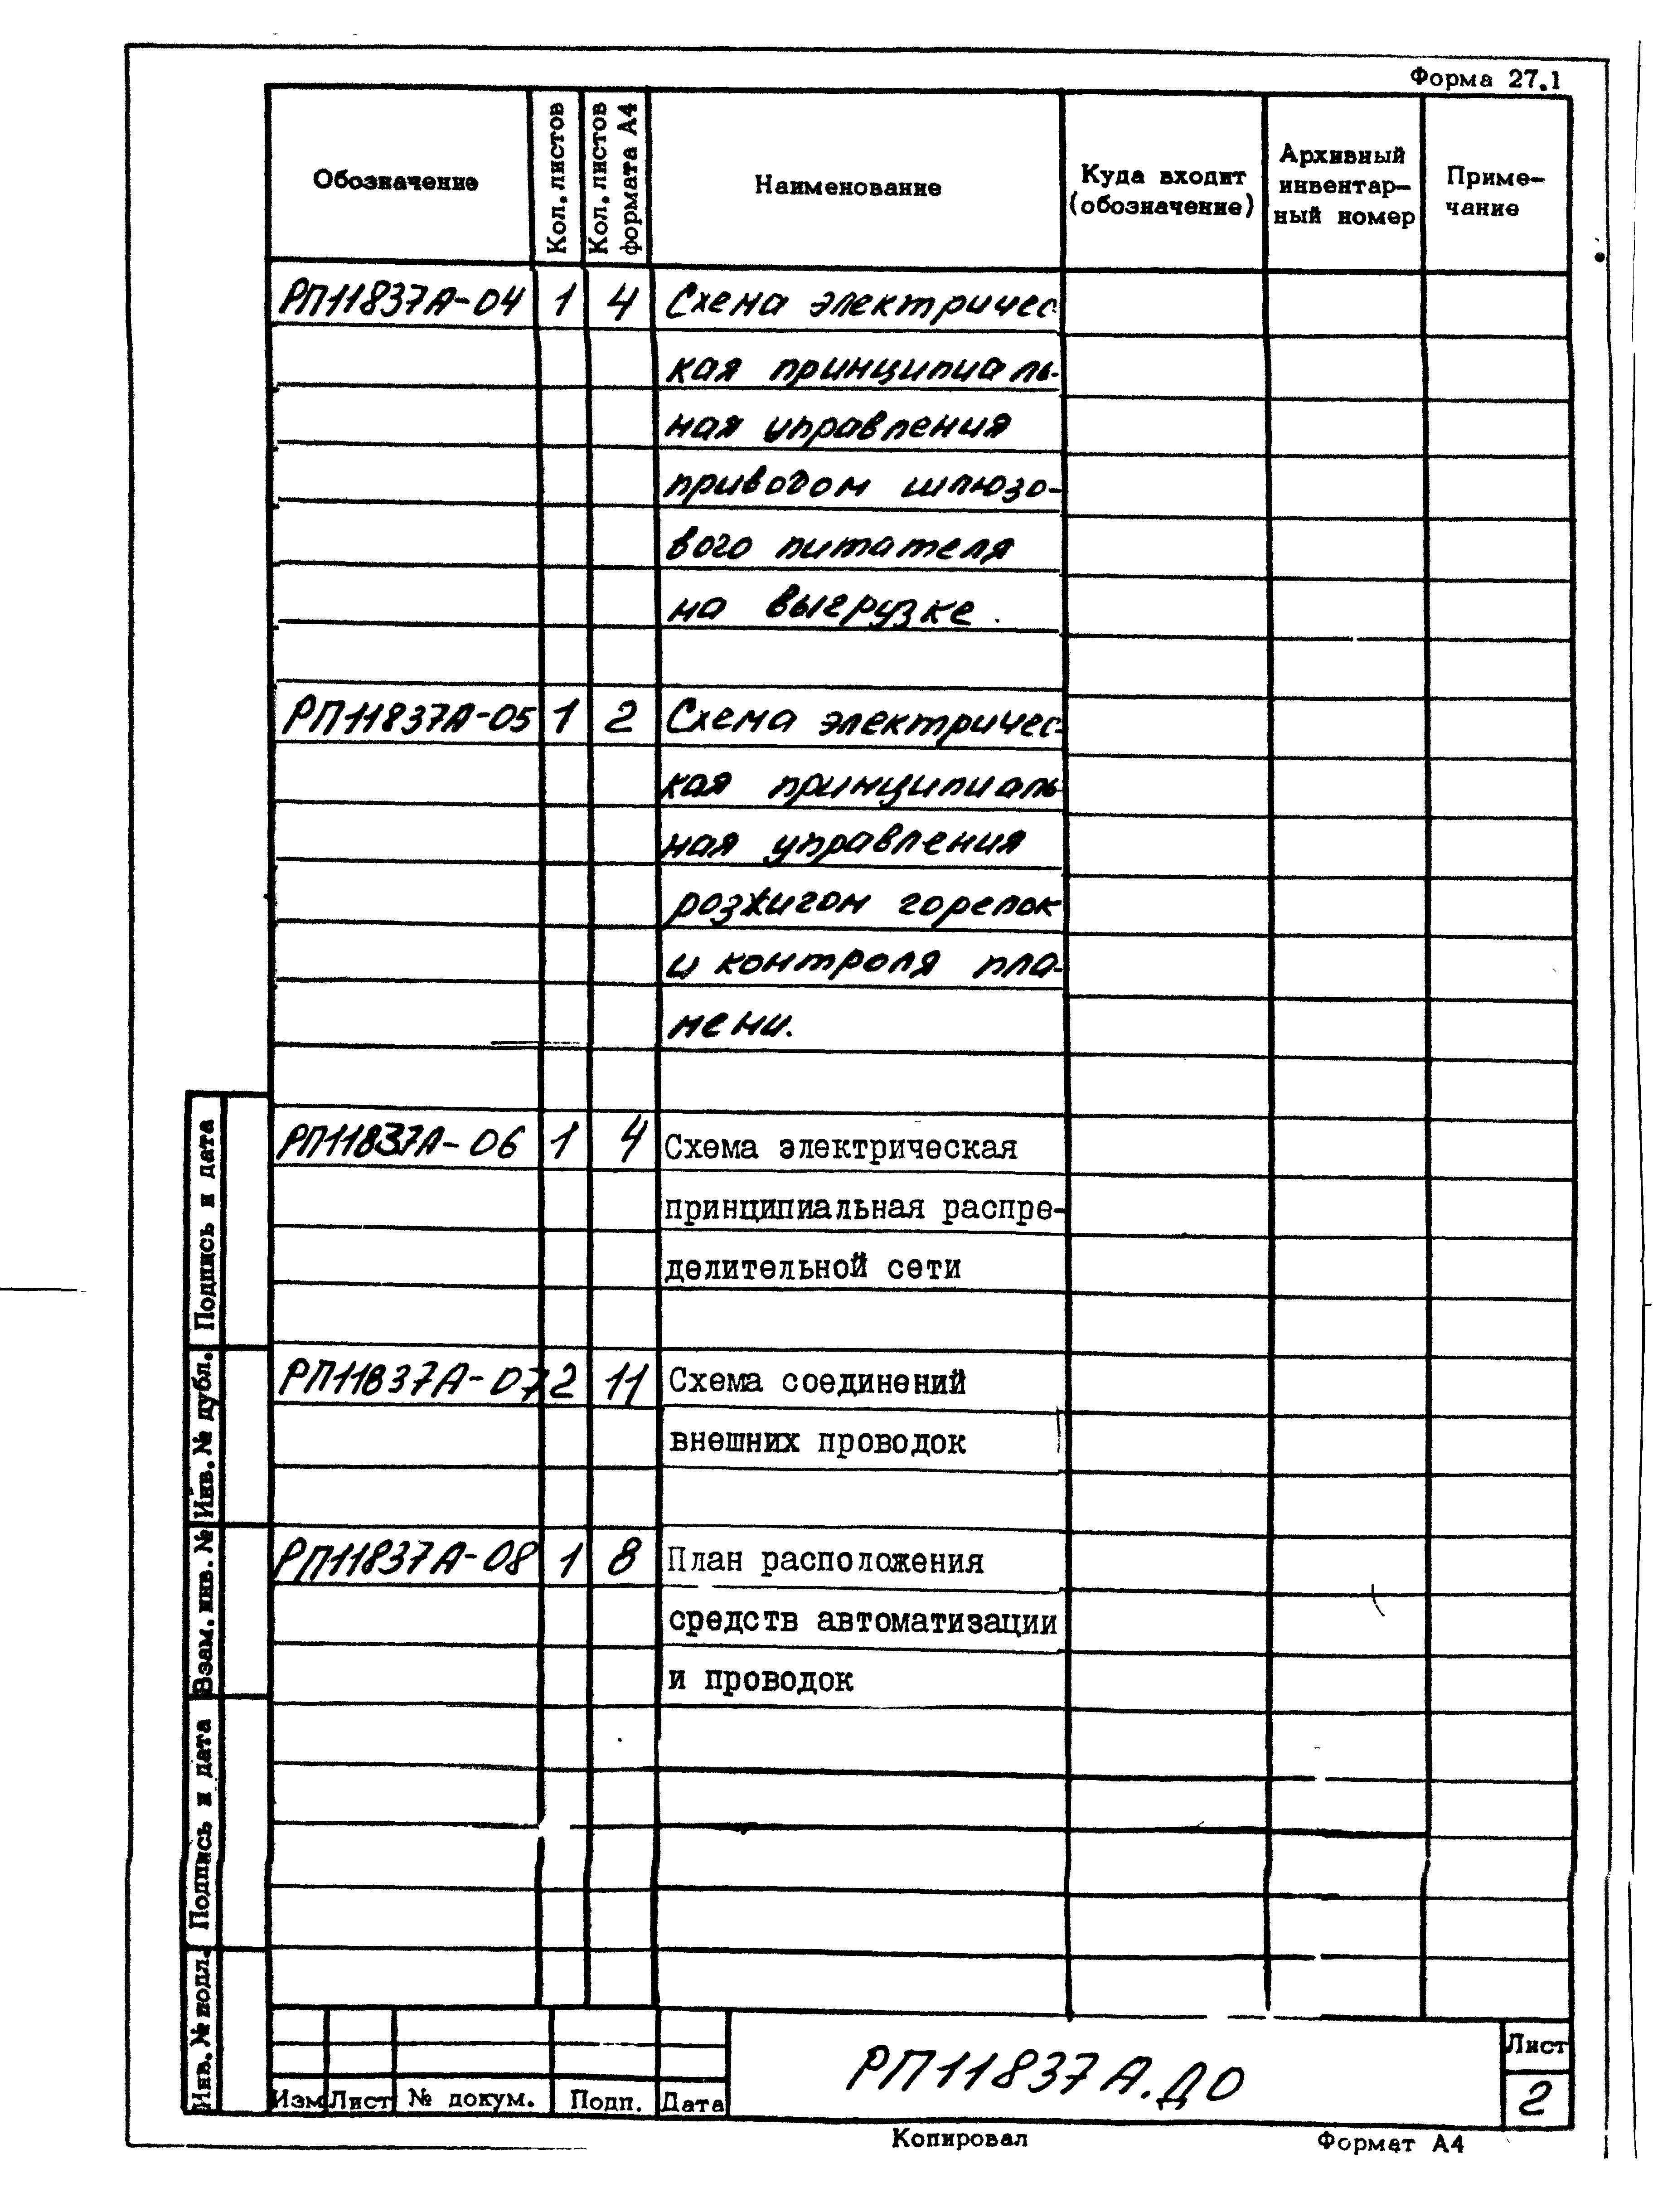 Форма 27.1
Обозначение
Кол. листов
Кол. листов
формата А4
Наименование
Куда входит
(обозначение)
Архивный
инвентар-
ный номер
Приме-
чание
РП11837А-04 1 4 Схема электричес-
кая принципиаль-
ная управления
приводом шлюзо-
вого питателя
на выгрузке.
РП11837А-05 1 2 Схема электричес-
кая принципиаль-
ная управления
розжигом горелок
и контроля пла-
мени.
РП11837А-06 1 4 Схема электрическая
принципиальная распре-
делительной сети
РП11837А-07 2 11 Схема соединений
внешних проводок
РП11837А-08 1 8 План расположения
средств автоматизации
и проводок
Подпись и дата
Инв. № дубл.
Взам. инв. №
Подпись и дата
Инв. № подл.
Изм Лист № докум. Подп. Дата
РП11837А.ДО
Лист
2
Копировал
Формат А4